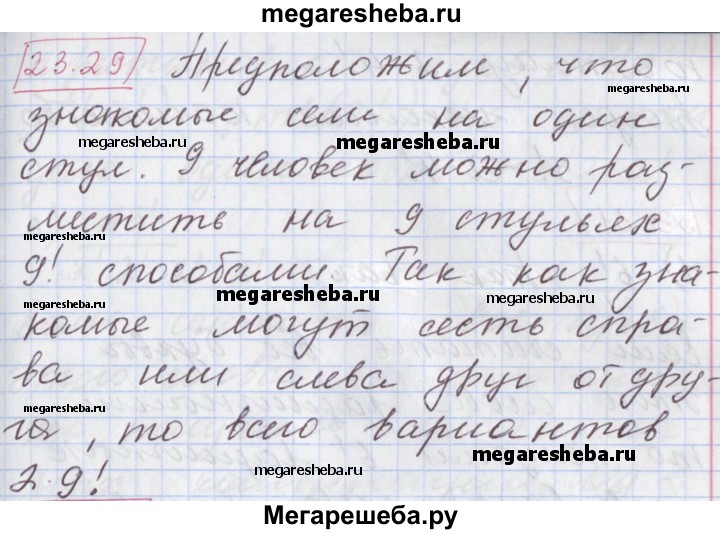 megaresheba.ru
23.29 Предположим, что
megaresheba.ru
знакомые сели на один
megaresheba.ru
megaresheba.ru
стул. 9 человек можно раз-
местить на 9 стульях
megaresheba.ru
9! способами. Так как зна-
megaresheba.ru
megaresheba.ru
комые могут сесть спра-
ва или слева друг от дру-
megaresheba.ru
га, то всего вариантов
megaresheba.ru
megaresheba.ru
2·9!
Мегарешеба.ру